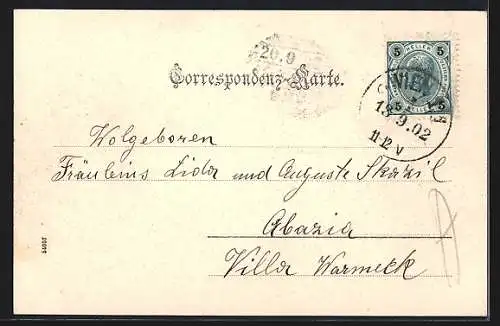 5 HELLER 5
20.9
Correspondenz-Karte.
WIEN
18.9.02
11-12 V
Wolgeboren
Fräuleins Lida und Auguste Skazil
Abazia
Villa Warmeck